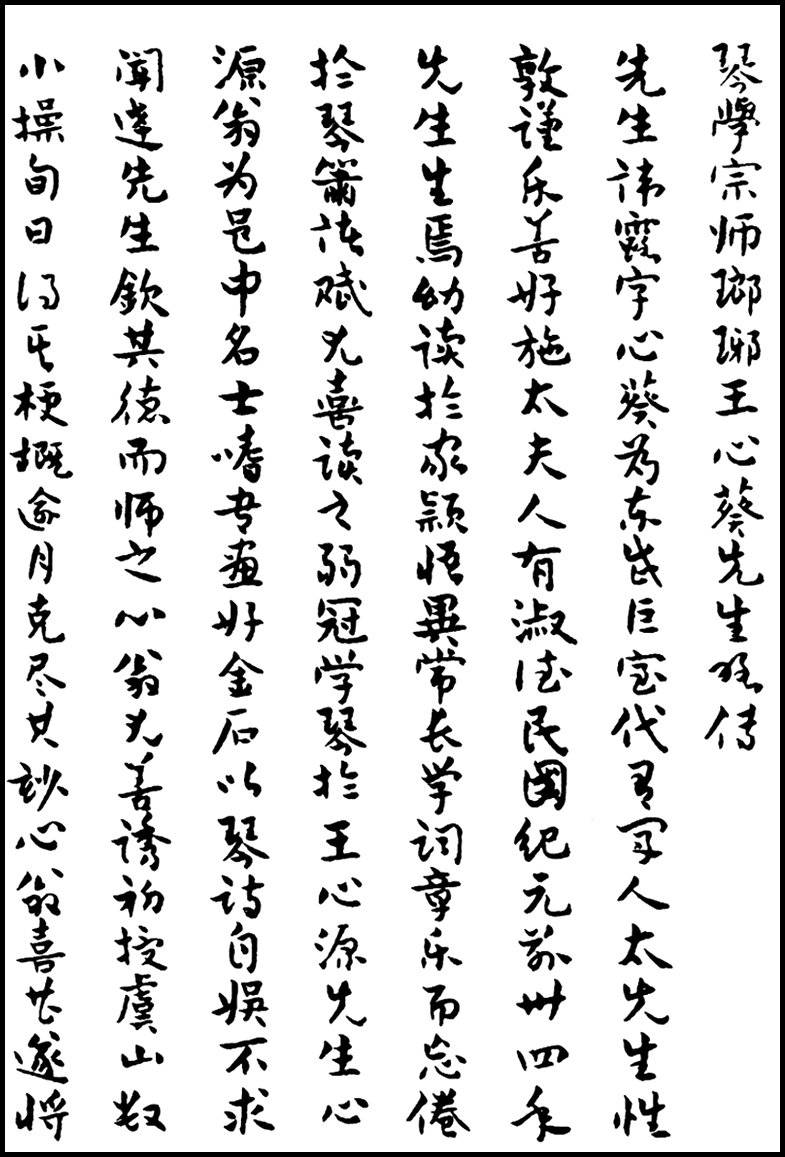 琴學宗师瑯琊王心葵先生传
先生讳露字心葵為东武巨室代有闻人太先生性
敦谨乐善好施太夫人有淑德民國纪元前卅四年
先生生焉幼读於家颖悟異常长学词章乐而忘倦
於琴箫诗赋尤喜读之弱冠学琴於王心源先生心
源翁为邑中名士嗜书画好金石以琴诗自娱不求
闻達先生欽其德而师之心翁尤善誘初授虞山数
小操旬日得其梗概逾月克尽其妙心翁喜甚遂将